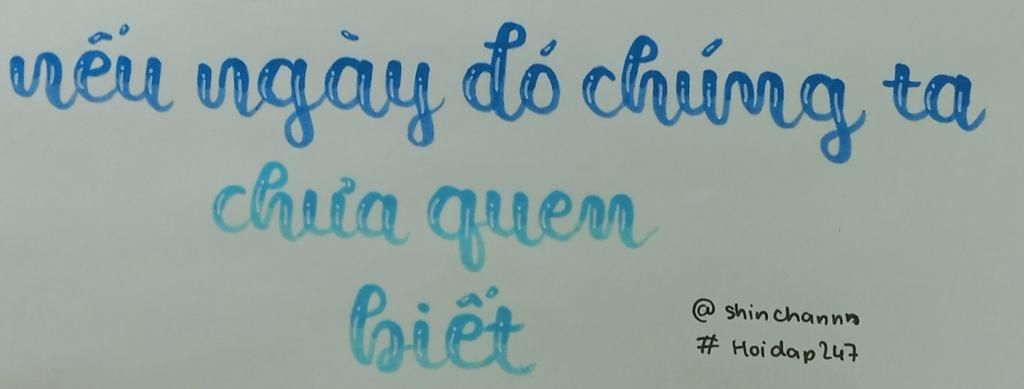 nếu ngày đó chúng ta
chưa quen
biết
@ shinchannn
# Hoidap247